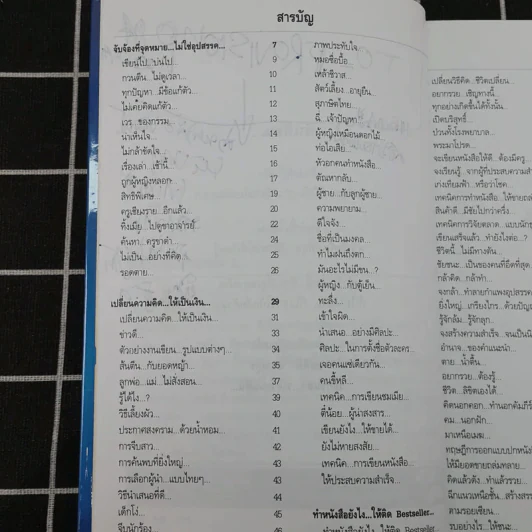 สารบัญ
จับจ้องที่จุดหมาย...ไม่ใช่อุปสรรค... 7
เขียนไป...บ่นไป... 9
กวนตีน...ไม่ดูเวลา... 10
ทุกปัญหา...มีข้อแก้ตัว... 11
ไม่เคยคิดแก้ตัว... 12
เวร...ของกรรม... 13
น่าเห็นใจ... 14
ไม่กล้าขัดใจ... 15
เรื่องเล่า...เช้านี้... 16
ถูกผู้หญิงหลอก... 17
สิทธิพิเศษ... 19
ครูเชียงราย...อีกแล้ว... 20
ทิ้งเมีย...ไปดูซาอาจารย์... 22
ค้นหา...ครูซาดำ... 24
ไม่เป็น...อย่างที่คิด... 25
รอดตาย... 26
เปลี่ยนความคิด...ให้เป็นเงิน... 29
เปลี่ยนความคิด...ให้เป็นเงิน... 31
ข่าวดี... 33
ตัวอย่างงานเขียน...รูปแบบต่างๆ... 34
ส้นตีน...กับยอดหญ้า... 35
ลูกพ่อ...แม่...ไม่สั่งสอน... 37
รู้ได้ไง...? 39
วิธีเลี้ยงผัว... 40
ประกาศสงคราม...ด้วยน้ำหอม... 41
การจีบสาว... 42
การค้นพบที่ยิ่งใหญ่... 43
การเลือกผู้นำ...แบบไทยๆ... 43
วิธีนำเสนอที่ดี... 44
เด็กโง่... 45
จีบนักร้อง... 46
ภาพประทับใจ...
หมอชื่อบื้อ...
เหล้าชีวาส...
สัตว์เลี้ยง...อายุยืน...
สุภาษิตไทย...
ฉี่...เจ้าปัญหา...
ผู้หญิงเหมือนดอกไม้...
ท่อไอเสีย...
หัวอกคนทำหนังสือ...
ตัณหากลับ...
ผู้ชาย...กับลูกผู้ชาย...
ความพยายาม...
ดีใจจัง...
ชื่อที่เป็นมงคล...
ทำไมฝนถึงตก...
มันอะไรไม่มีขน...?
ผู้หญิง...กับตู้เย็น...
ทะลึ่ง...
เข้าใจผิด...
นำเสนอ...อย่างมีศิลปะ...
ศิลปะ...ในการตั้งชื่อตัวละคร...
เจอคนแซ่เดียวกัน...
คนขี้หลี...
เทคนิค...การเขียนชมเมีย...
ตี๋น้อย...ผู้น่าสงสาร...
เขียนยังไง...ให้ขายได้...
ยังไม่หายสงสัย...
เทคนิค...การเขียนหนังสือ...
ให้ประสบความสำเร็จ...
ทำหนังสือยังไง...ให้ติด Bestseller...
ทำหนังสือยังไง...ให้ติด Bestseller...
เปลี่ยนวิธีคิด...ชีวิตเปลี่ยน...
อยากรวย...เชิญทางนี้...
ทุกอย่างเกิดขึ้นได้ทั้งนั้น...
เปิดบริสุทธิ์...
ป่วนทั้งโรงพยาบาล...
พระมาโปรด...
จะเขียนหนังสือให้ดี...ต้องมีครู...
จงเรียนรู้...จากผู้ที่ประสบความสำ
เก่งเทียมฟ้า...หรือว่าโชค...
เทคนิคการทำหนังสือ...ให้ขายถล่
สินค้าดี...มีชัยไปกว่าครึ่ง...
เทคนิคการวิจัยตลาด...แบบนักธุ
เขียนเสร็จแล้ว...ทำยังไงต่อ...?
ชีวิตนี้...ไม่มีทางตัน...
ชัยชนะ...เป็นของคนที่อึดที่สุด...
กล้าคิด...กล้าทำ...
จงกล้า...ทำลายกำแพงอุปสรรค
ยิ่งใหญ่...เกรียงไกร...ด้วยปัญญ
รู้จักล้ม...รู้จักลุก...
จงสร้างความสำเร็จ...จนเป็นนิ
อำนาจ...ของคำแนะนำ...
ตาย...น้ำตื้น...
อยากรวย...ต้องรู้...
ชีวิต...ลิขิตเองได้...
คิดนอกคอก...ทำนอกคัมภีร์
คม...นอกฝัก...
มาเหนือเมฆ...
ทฤษฎีการออกแบบปกหนังสื
ให้มียอดขายถล่มทลาย...
คิดแล้วดัง...ทำแล้วรวย...
ฉีกแนวเหนือชั้น...สร้างสรร
ตามรอยเซียน...
รบอย่างไร...ให้ชนะ...